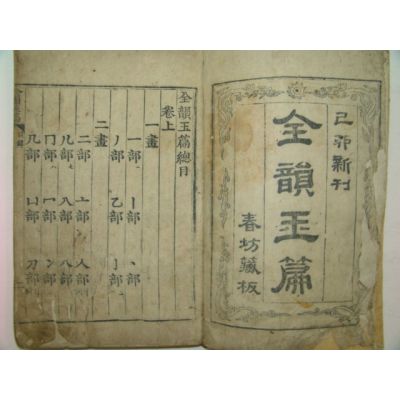 己卯新刊
全韻玉篇
春坊藏板
全韻玉篇總目
卷上
一畫
一部 丨部 丶部
丿部 乙部 亅部
二畫
二部 亠部 人部
儿部 入部 八部
冂部 冖部 冫部
几部 凵部 刀部